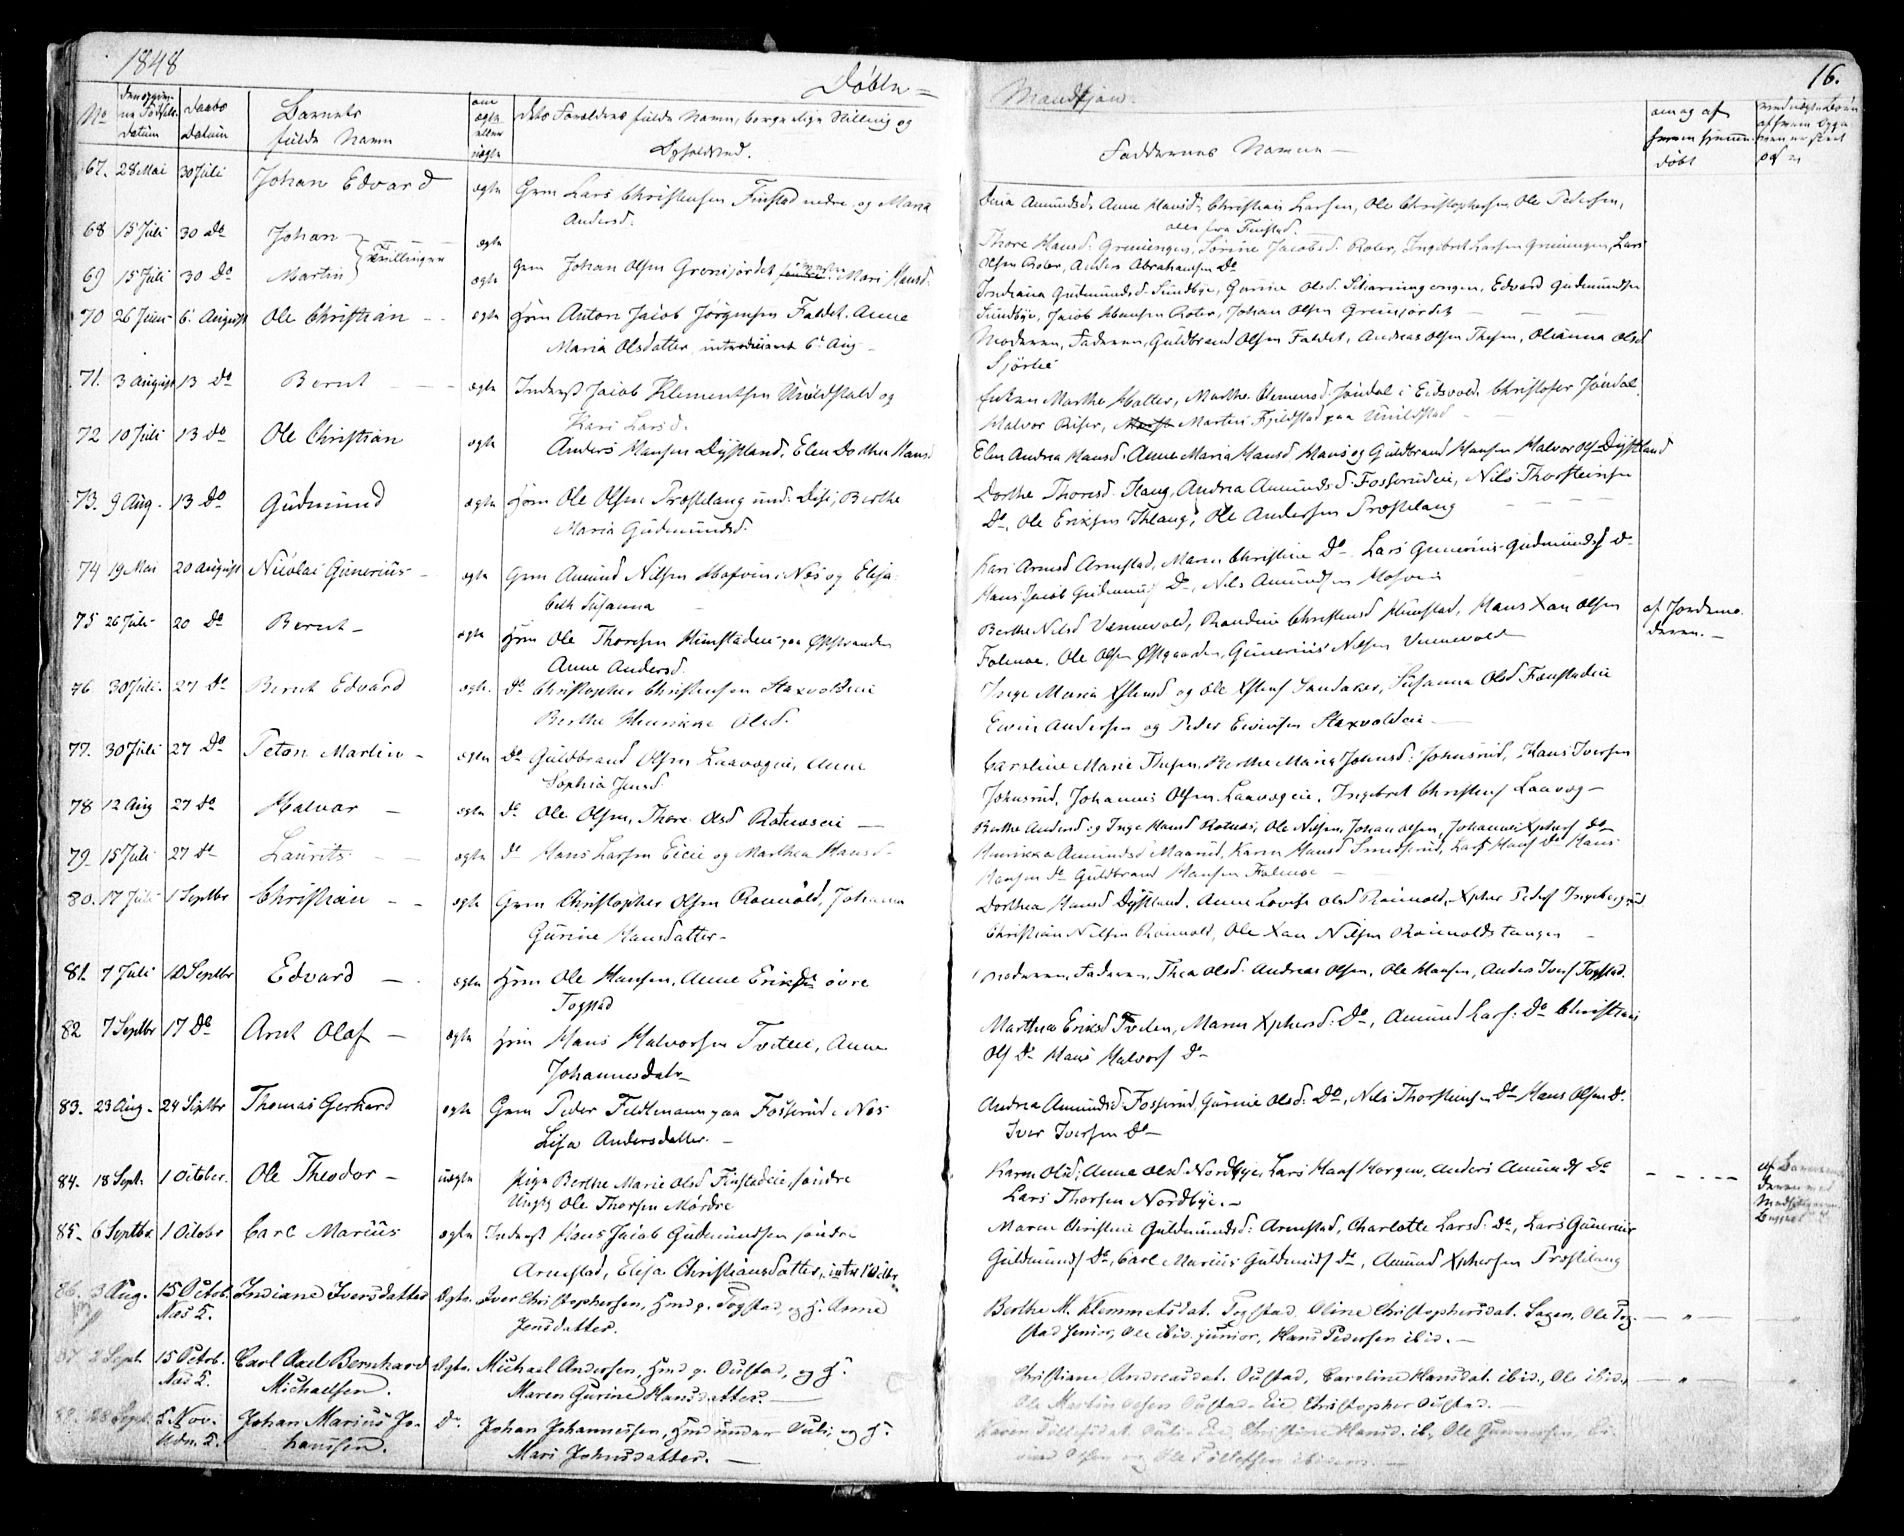 1848
Døbte
Mandkjøn.
16.
No
Fødsels datum
Daabs datum
Barnets fulde Navn
om ægte eller uægte
dets Forældres fulde Navn, borgerlige Stilling og Opholdsted.
Faddernes Navne
om og af hvem hjemmedøbt
67. 28 Mai 30 Juli Johan Edvard ægte Grm Lars Christensen Finstad nedre og Maria
Andersd.
Amundsd, Anne Hansd, Christian Larsen, Ole Christophersen, Ole Pedersen,
alle fra Finstad.
68 15 Juli 30 Do Johan ægte
Thore Hansd: Greningen, Sørine Jacobsd. Roter, Ingebret Larsen Greningen, Lars
Olsen Roter, Anders Abrahamsen Do
69 15 Juli 30 Do Martin Tvillinger ægte Grm Johan Olsen Grenijordet Mari Hansd.
Indiana Gudmundsd. Sundbye, Gurine Olsd. Edvard Gudmundsen
Sundbye, Jacob Hansen Roter, Johan Olsen Grenijordet
70 26 Juni 6 August Ole Christian ægte Hsm Anton Jacob Jørgensen Faldet. Anne
Maria Olsdatter, introduceret 6t Aug
Moderen, Faderen, Guldbrand Olsen Faldet, Andreas Olsen Olianna Olsd
71. 3 August 13 Do Bernt ægte Inderst Jacob Klementsen og
Kari Larsd.
Enken Marthe Holter, Marthe Clemensd. Jøndal i Eidsvold, Christofer Jøndal
Halvor Riser, Martin Fjeldstad paa
72 10 Juli 13 Do Ole Christian ægte Anders Hansen Dystland, Elen Dorthea Hansd
Elen Andrea Hansd. Anne Maria Hansd Hans og Guldbrand Hansen Halvor Ols Dystland
73. 9 Aug. 13 Do Gudmund ægte Hsm Ole Olsen Præstelang und: Disi, Berthe
Maria Gudmundsd.
Dorthe Thoresd. Haug, Andrea Amundsd Fosserudeie, Nils Thorsteinsen
Do, Ole Eriksen Ole Andersen Præstelang
74 19 Mai 20 August Nicolai Gunerius ægte Grm Amund Nilsen Hofvin i Nes og Elisa-
beth Susanna
Kari Arnesd Arnestad, Maren Christine Do Lars Gunerius Gudmunds Do
Hans Jacob Gudmunds Do, Nils Amundsen Hofvin
75 26 Juli 20 Do Bernt ægte Hsm Ole Thoresen Hunstadeie paa Øststranden
Anne Andersd.
Berthe Nilsd Vennevold, Randine Christensd Hunstad, Hans Xan Olsen
Folmoe, Ole Olsen Østgaarden, Gunerius Nilsen Vennevold
af Jordemo-
deren.
76 30 Juli 27 Do Bernt Edvard ægte Do Christopher Christensen Haxvoldeie
Berthe Henrikke Olsd.
Inge Maria Xstensd og Ole Xstens Sandaker, Susanna Olsd
Even Andersen og Peder Evensen Haxvoldeie
77. 30 Juli 27 Do Peton Martin ægte Do Guldbrand Olsen Laavegeie, Anne
Sophia Jensd
Caroline Marie Thesen, Berthe Maria Johnsd: Johnsrud, Hans Iversen
Johnsrud, Johannes Olsen Laavegeie, Ingebret Christens Laaveg
78 12 Aug 27 Do Halvor ægte Do Ole Olsen, Thore Olsd Rotneseie
Berthe Andersd: og Inge Hansd Rotnes, Ole Nilsen, Johan Olsen, Johannes Xphers Do
79 15 Juli 27 Do Laurits ægte Do Hans Larsen Eieie og Marthea Hansd
Henrikka Amundsd Maarud, Karen Hansd Lars Hans Do Hans
Hansen Do Guldbrand Hansen Folmoe
80. 17 Juli 1 Septbr Christian ægte Grm Christopher Olsen Rounold, Johanna
Gurine Hansdatter
Dorthea Hansd Dystland, Anne Lovise Olsd Rounold, Xpher Peders Ingebergsrud
Christian Nilsen Rounold, Ole Xan Nilsen Rounoldstangen
81. 7 Juli 10 Septbr Edvard ægte Hsm Ole Hansen, Anne Eriksd øvre
Togstad
Moderen, Faderen, Thea Olsd. Andreas Olsen, Ole Hansen, Anders Ivers Togstad.
82 7 Septbr 17 Do Arnt Olaf ægte Hsm Hans Halvorsen Tveteie, Anne
Johannesdatr
Marthea Eriksd Tveten, Maren Xphersd: Do, Amund Lars: Do Christian
Ols Do Hans Halvors Do
83. 23 Aug. 24 Septbr Thomas Gerhard ægte Grm Peder Feldtmann paa Fosserud i Nes
Lisa Andersdatter.
Andrea Amundsd. Fosserud, Gurine Olsd: Do, Nils Thorsteinsen Do Hans Olsen Do.
Iver Iversen Do
84. 18 Sept. 1 October. Ole Theodor uægte Pige Berthe Marie Olsd Finstadeie søndre
Ungk Ole Thorsen Mørdre
Karen Olsd, Anna Olsd Nordbye, Lars Hans Horgen, Anders Amunds Do
Lars Thorsen Nordbye.
85. 6 Septbr. 1 Octobr Carl Marius ægte Inderst Hans Jacob Guldmundsen søndre
Arnestad, Elisa Christiansdatter, intr 1 Octbr
Maren Christine Guldmundsd: Arnestad, Charlotte Larsd: Do, Lars Gunerius
Guldmunds Do, Carl Marius Guldmunds Do, Amund Xphersen Præstelang
86. 3 Aug. 15 Octob. Næs K. Indiane Iversdatter Ægte. Iver Christophersen, Hmd p. Togstad, og H. Anne
Jensdatter.
Berthe M. Klemmetsdat. Togstad, Oline Christophersdat. Sagen, Ole Tog-
stad senior, Ole ibid. junior, Hans Pedersen ibid.
87. 2 Sept. 15 Octob. Næs K. Carl Axel Bernhard
Michaelsen. Ægte. Michael Andersen, Hmd p. Oustad, og H.
Maren Gurine Hansdatter.
Christiane Andreasdat. Oustad, Caroline Hansdat. ibid., Ole ibid.,
Ole Martin Olsen Oustad-Eie, Christopher Oustad.
88. 28 Sept. 5 Nov. Udn. K. Johan Marius Jo-
hansen. Do. Johan Johannessen, Hmd under Ouli, og H.
Mari Johnsdatter.
Karen Tollefsdat. Ouli-Eie, Christine Hansd. ib., Ole Gunnersen, Ei-
vind Olsen og Ole Tollefsen ibidem.